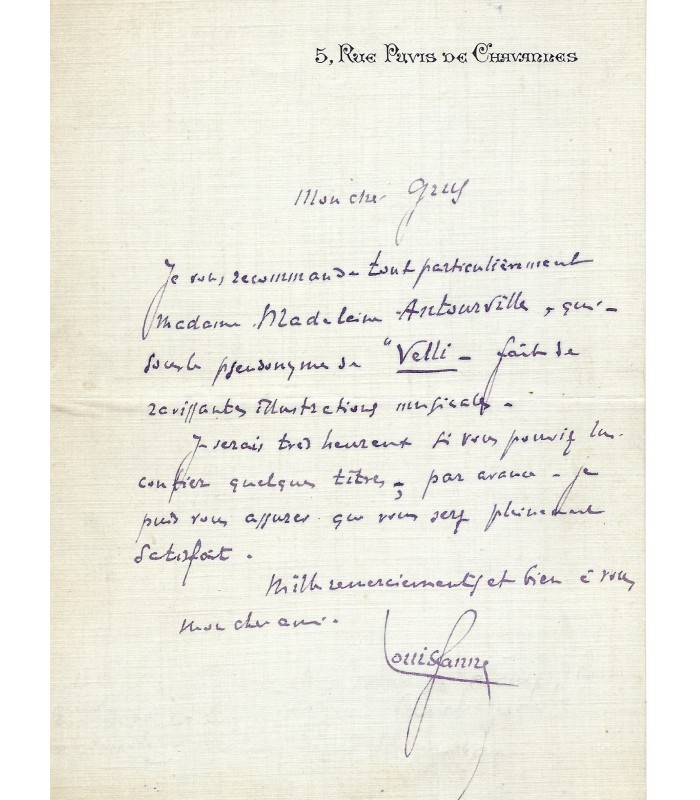 5, Rue Puvis de Chavannes
Mon cher Grus
Je vous recommande tout particulièrement
madame Madeleine Antourville, qui -
sous le pseudonyme de "Velli - fait de
ravissantes illustrations musicales -
Je serais très heureux si vous pouviez lui
confier quelques titres, par avance - je
puis vous assurer que vous serez pleinement
satisfait.
Mille remerciements et bien à vous
mon cher ami.
Louis Ganne